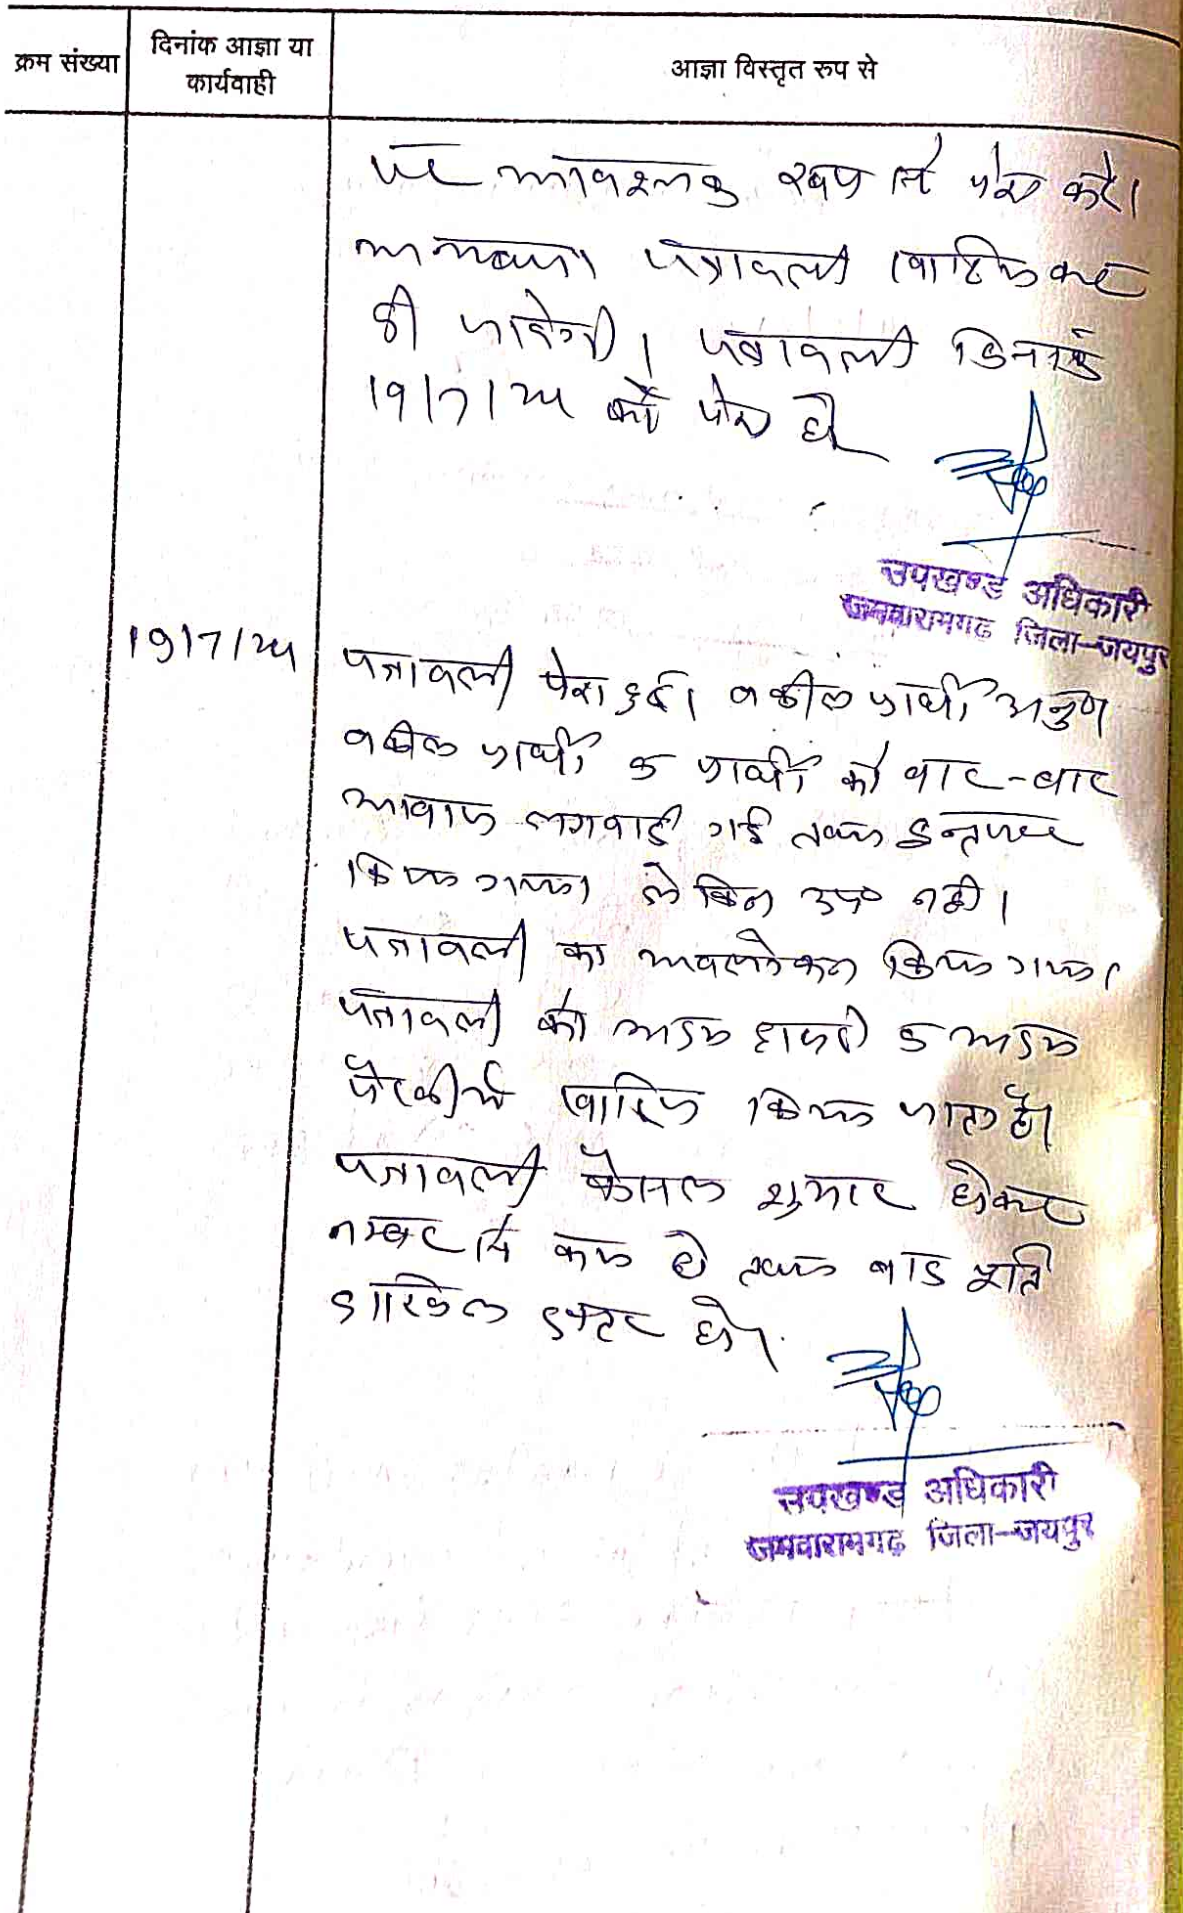 क्रम संख्या
दिनांक आज्ञा या
कार्यवाही
आज्ञा विस्तृत रुप से
पर आवश्यक रूप से पेश करे।
अन्यथा पत्रावली खारिज कर
दी जावेगी। पत्रावली दिनांक
19/7/24 को पेश हो
उपखण्ड अधिकारी
जमवारामगढ़ जिला-जयपुर
19/7/24
पत्रावली पेश हुई। वकील प्रार्थी अनुप॰
वकील प्रार्थी व प्रार्थी को बार-बार
आवाज लगवाई गई तथा इन्तजार
किया गया लेकिन उप॰ नही।
पत्रावली का अवलोकन किया गया।
पत्रावली को अदम हाजरी व अदम
पैरवी में खारिज किया जाता है।
पत्रावली फैसल शुमार होकर
नम्बर से कम हो तथा बाद पूर्ति
दाखिल दफ्तर हो।
उपखण्ड अधिकारी
जमवारामगढ़ जिला-जयपुर